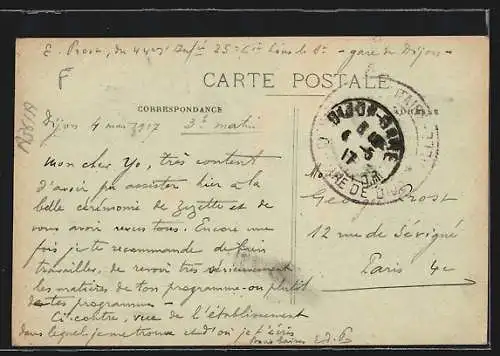 E. Prost, du 44e Inft 25e Cie - gare de Dijon -
F
CARTE POSTALE
CORRESPONDANCE
ADRESSE
Dijon 4 mai 1917 3h matin
Mon cher Yo, très content
d'avoir pu assister hier à la
belle cérémonie de Zuzette et de
vous avoir revus tous. Encore une
fois je te recommande de bien
travailler, de revoir très sérieusement
les matières de ton programme ou plutôt
tes programmes -
Ci-contre, vue de l'établissement
dans lequel je me trouve et d'où je t'écris
Bons baisers Ed. P
DIJON-GARE
GARE DE
Prost
12 rue de Sévigné
Paris 4e